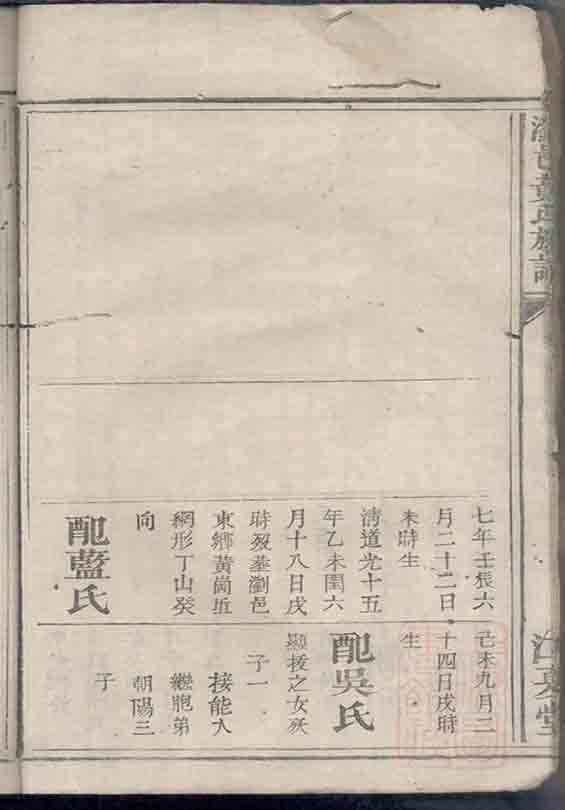 黃氏族譜
七年壬辰六
月二十二日
未時生
清道光十五
年乙未閏六
月十八日戌
時歿墓瀏邑
東鄉黃崗坵
網形丁山癸
向
配藍氏
己未九月二
十四日戌時
生
配吳氏
顯援之女歿
子一
接能大
繼胞弟
朝陽三
子